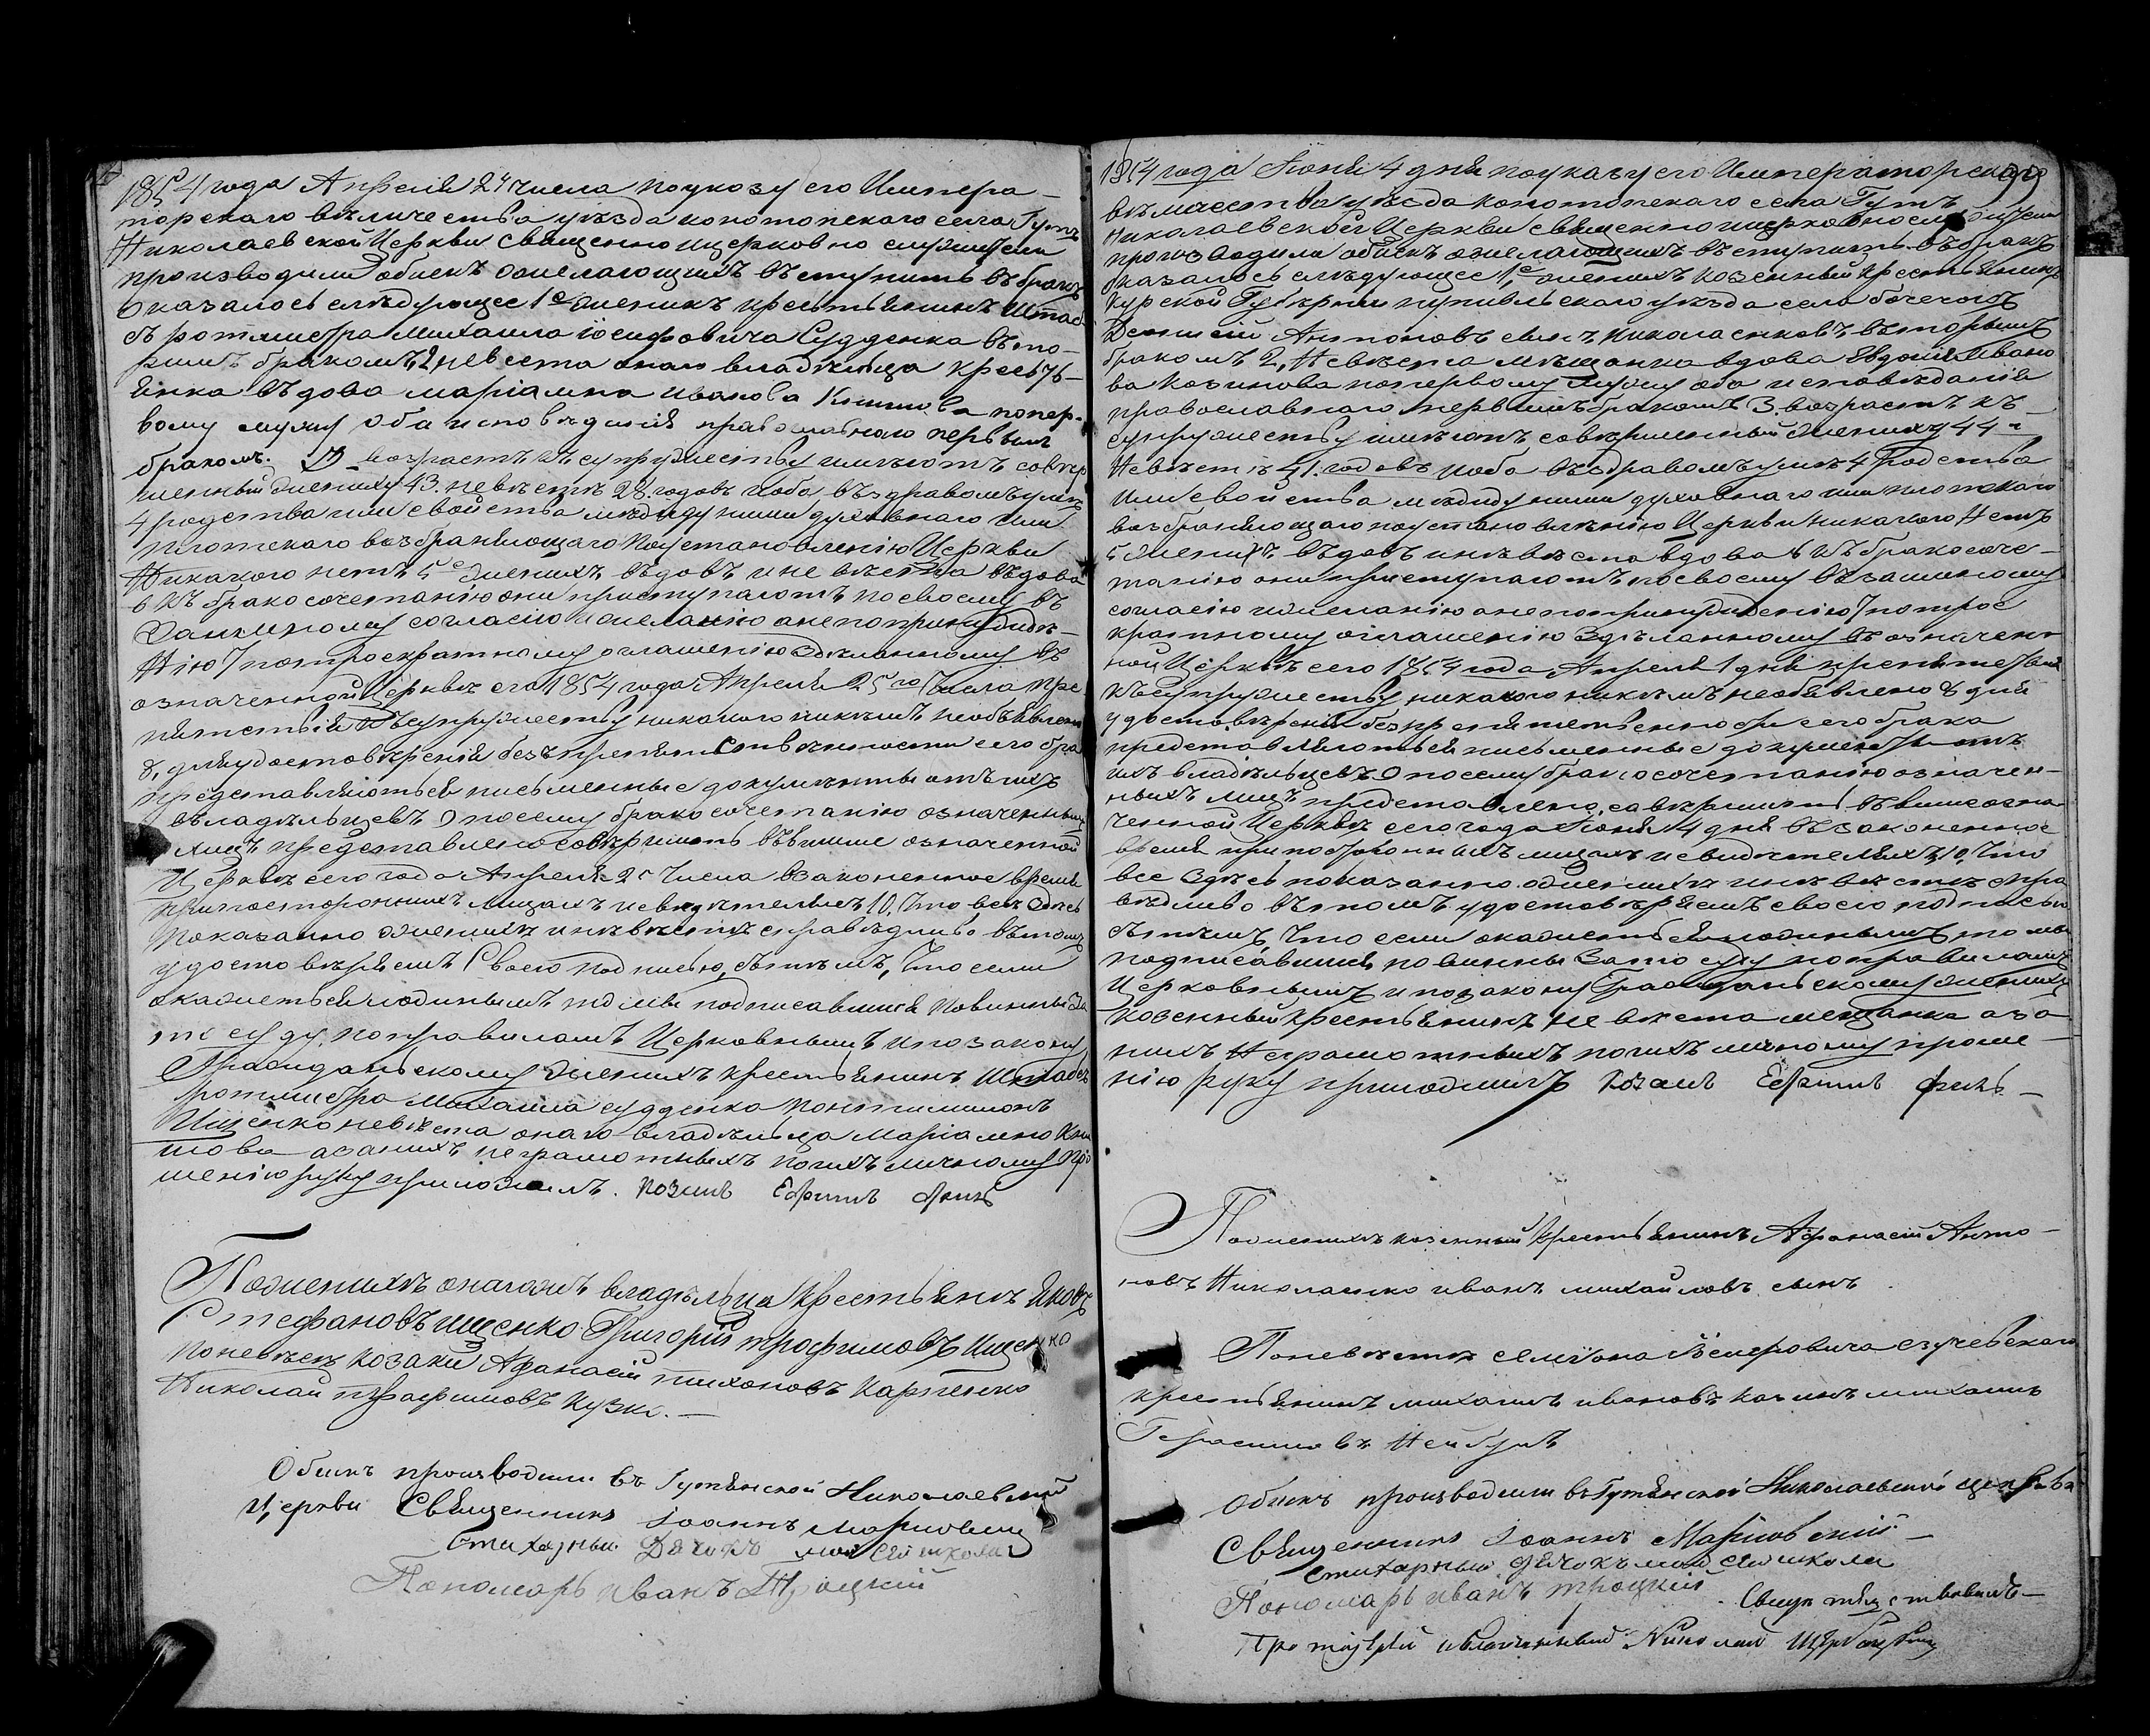 1854 года Апреля 24 числа по указу его Импера-
торскаго величества уезда конотопскаго села Гутъ
Николаевской Церкви священно ицерковно служители
производили обискъ ожелающихъ вступить въ бракъ
Оказалось следующее 1е женихъ крестьянинъ Штаб
съ ротмистра Михаила іосифовича Судденка вто-
римъ бракомъ, 2 невеста онаго владельца кресть-
янка въдова маріамна иванова попер-
вому мужу оба исповеданія православнаго первымъ
бракомъ. возрастъ къ супружеству имеютъ совер
шенный жениху 43. невесте 28. годовъ иоба въздравомъ уме
4 родства или свойства между ними духовнаго или
плотскаго возбраняющаго поустановленію Церкви
Никакого нетъ 5е женихъ въдовъ и не веста въдова
6 къ бракосочетанію они приступаютъ по своему въ
заимному согласію и желанію анепопринужде-
нію 7 потроекратному оглашенію зделанному въ
означенной Церкве сего 1854 года Апреля 25го числа пре
пятствія къ супружеству никакого никемъ необъявлено
8, дляудостоверенія безъпрепятственности сего бра
представляются письменные документы отъ ихъ
въладельцевъ 9 посему бракосочетанію означенныхъ
лицъ представлено совершить въвыше означенной
Церкве сего года Апреля 25 числа взаконенное время
припостороннихъ лицахъ исвидетеляхъ 10, Что все здесь
показанно оженихе иневесте справедливо втомъ
удостоверяемъ Своею подписью, стемъ, Что если
окажеться чтодинымъ то мы подписавшися повинны за
то суду поправиламъ Церковнымъ ипозакону
Гражданскому женихъ крестьянинъ Штабсъ
ротмистра Михаила судденка
Ищенко невеста онаго владельца Маріамна
това азанихъ неграмотныхъ поихъ личному про
шенію руку приложилъ. козакъ Ефимъ

Поженихе онагоже владельца крестьяне Яковъ
Стефановъ ищенко Григорій трофимовъ Ищенко
Поневесте козаки Афанасій тихоновъ Карпенко
Николай трофимовъ

Обискъ производили въ Гутянской Николаевской
Церкви Священникъ Іоаннъ
Стихарный Дячокъ
Пономарь иванъ Троцкій

1854 года Іюня 4 дня поуказу его Императорскаго
величества уезда конотопскаго села Гутъ
Николаевской Церкви священно ицерковнослужители
производили обискъ ожелающихъ вступить въбракъ
оказалось следующее 1е, женихъ козенный крестьянинъ
Курской Губерніи путивльскаго уезда села бочечокъ
Антоновъ сынъ Николаенковъ вторымъ
бракомъ 2, Невеста мещанка вдова Евдокія Ивано
ва Козинова попервому мужу оба исповеданія
православнаго первымъ бракомъ 3 возрастъ къ
супружеству имеютъ совершенный жениху 44
Невесте 41. годовъ иоба въздравомъ уме 4 родства
Или свойства между ними духовнаго или плотскаго
возбраняющаго поустановленію Церкви никакого Нетъ
5 женихъ въдовъ иневеста вдова 6 къ бракосоче-
танію они приступаютъ посвоему възаимному
согласію ижеланію анепопринужденію 7 потрое
кратному оглашенію зделанному въозначен
ной Церкве сего 1854 года Апреля 1 дня препятствія
къ супружеству никакого никемъ необявлено 8 для
удостоверенія безпрепятственности сего брака
представляються писменные документы отъ
ихъ владельцевъ 9 посему бракосочетанію означен-
ныхъ лицъ представлено, савершить въвышеозна
ченной Церкве сего года Іюня 4 дня възаконенное
время припосторонныхъ лицахъ исвидетеляхъ 10, Что
все здесь показанно ожених е иневесте спра
ведливо вътомъ удостоверяемъ своею подписью
стемъ, Что если окажеться чтодинымъ то мы
подписавшися, повинны зато суду поправиламъ
Церковнымъ ипозакону Гражданскому женихъ
козенный крестьянинъ невеста мещанка аза
нихъ Неграмотныхъ поихъ личному проше-
нію руку приложилъ козакъ Ефимъ

Поженихе козенный крестьянинъ Афанасій Анто-
новъ Николаенко иванъ михайловъ сынъ

Поневесте
крестьянинъ михаилъ ивановъ михаилъ
Герасимовъ

Обискъ производили въ Гутянской Николаевской церкви
Священникъ Іоаннъ
стихарный Дячокъ
Пономарь иванъ троцкій Свидетельствовалъ-
Протоіерей и благочинный Николай